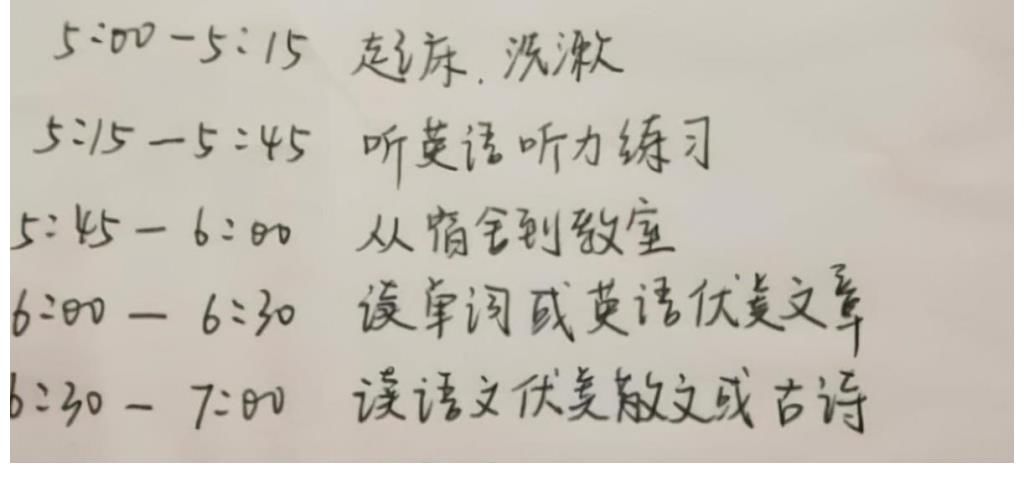 5:00-5:15 起床.洗漱
5:15-5:45 听英语听力练习
5:45-6:00 从宿舍到教室
6:00-6:30 读单词或英语优美文章
6:30-7:00 读语文优美散文或古诗